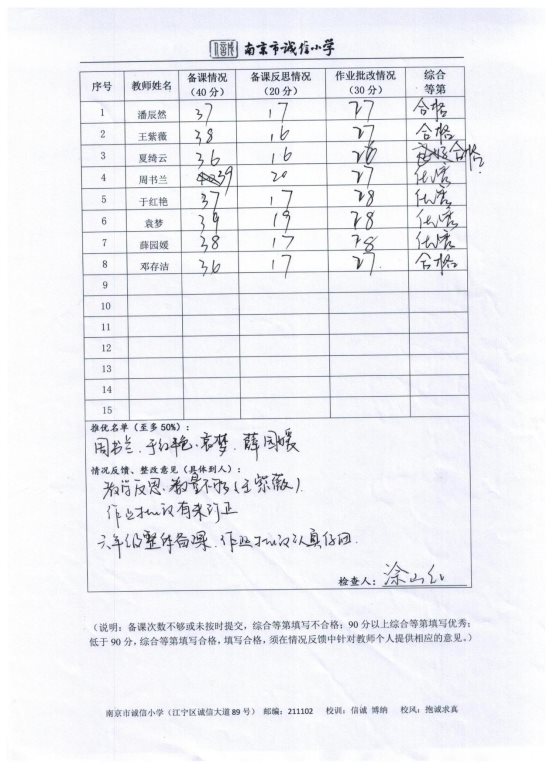 南京市诚信小学
序号 教师姓名 备课情况（40 分） 备课反思情况（20 分） 作业批改情况（30 分） 综合等第
1 潘辰然 37 17 27 合格
2 王紫薇 38 16 27 合格
3 夏绮云 36 16 26 合格
4 周书兰 39 20 27 优秀
5 于红艳 37 17 28 优秀
6 袁梦 39 19 28 优秀
7 薛园媛 38 17 28 优秀
8 邓存洁 36 17 27 合格
9
10
11
12
13
14
15
推优名单（至多 50%）：
周书兰、于红艳、袁梦、薛园媛
情况反馈、整改意见（具体到人）：
教学反思数量不够（王紫薇）.
作业批改有未订正
六年级整体备课、作业批改认真仔细.
检查人：涂山红
（说明：备课次数不够或未按时提交，综合等第填写不合格；90 分以上综合等第填写优秀；
低于 90 分，综合等第填写合格，填写合格，须在情况反馈中针对教师个人提供相应的意见。）
南京市诚信小学（江宁区诚信大道 89 号） 邮编：211102 校训：信诚 博纳 校风：抱诚求真